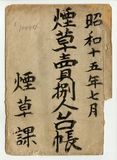 昭和十五年七月
煙草賣捌人台帳
煙草課